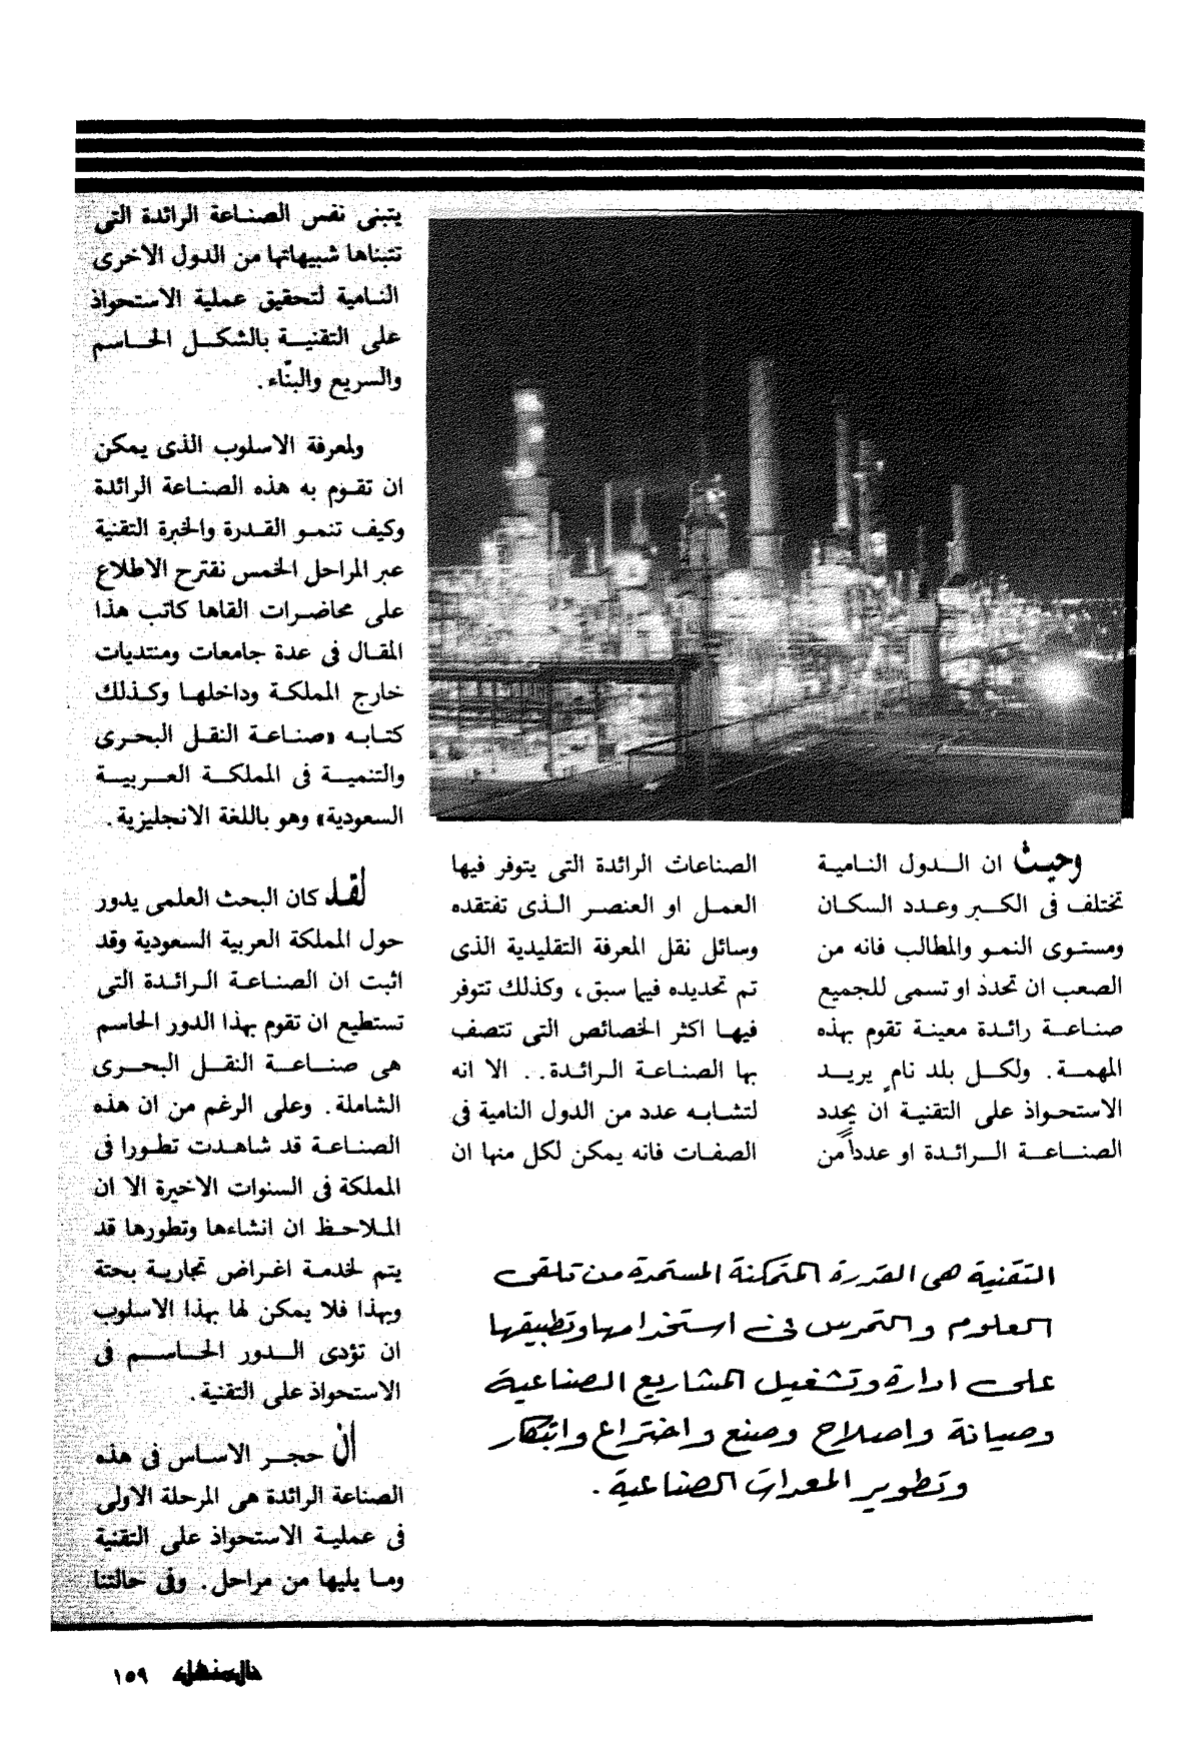 وحيث ان الدول النامية
تختلف فى الكبر وعدد السكان
ومستوى النمو والمطالب فانه من
الصعب ان تحدد او تسمى للجميع
صناعة رائدة معينة تقوم بهذه
المهمة. ولكل بلد نامٍ يريد
الاستحواذ على التقنية ان يحدد
الصناعة الرائدة او عدداً من
الصناعات الرائدة التى يتوفر فيها
العمل او العنصر الذى تفتقده
وسائل نقل المعرفة التقليدية الذى
تم تحديده فيما سبق، وكذلك تتوفر
فيها اكثر الخصائص التى تتصف
بها الصناعة الرائدة.. الا انه
لتشابه عدد من الدول النامية فى
الصفات فانه يمكن لكل منها ان
يتبنى نفس الصناعة الرائدة التى
تتبناها شبيهاتها من الدول الاخرى
النامية لتحقيق عملية الاستحواذ
على التقنية بالشكل الحاسم
والسريع والبنّاء.
ولمعرفة الاسلوب الذى يمكن
ان تقوم به هذه الصناعة الرائدة
وكيف تنمو القدرة والخبرة التقنية
عبر المراحل الخمس نقترح الاطلاع
على محاضرات القاها كاتب هذا
المقال فى عدة جامعات ومنتديات
خارج المملكة وداخلها وكذلك
كتابه «صناعة النقل البحرى
والتنمية فى المملكة العربية
السعودية» وهو باللغة الانجليزية.
لقد كان البحث العلمى يدور
حول المملكة العربية السعودية وقد
اثبت ان الصناعة الرائدة التى
تستطيع ان تقوم بهذا الدور الحاسم
هى صناعة النقل البحرى
الشاملة. وعلى الرغم من ان هذه
الصناعة قد شاهدت تطورا فى
المملكة فى السنوات الاخيرة الا ان
الملاحظ ان انشاءها وتطورها قد
يتم لخدمة اغراض تجارية بحتة
وبهذا فلا يمكن لها بهذا الاسلوب
ان تؤدى الدور الحاسم فى
الاستحواذ على التقنية.
ان حجر الاساس فى هذه
الصناعة الرائدة هى المرحلة الاولى
فى عملية الاستحواذ على التقنية
وما يليها من مراحل. وفى حالتنا
التقنية هى القدرة المتمكنة المستمدة من تلقى
العلوم والتمرس فى استخدامها وتطبيقها
على ادارة وتشغيل المشاريع الصناعية
وصيانة واصلاح وصنع واختراع وابتكار
وتطوير المعدات الصناعية.
المنهل ١٥٩